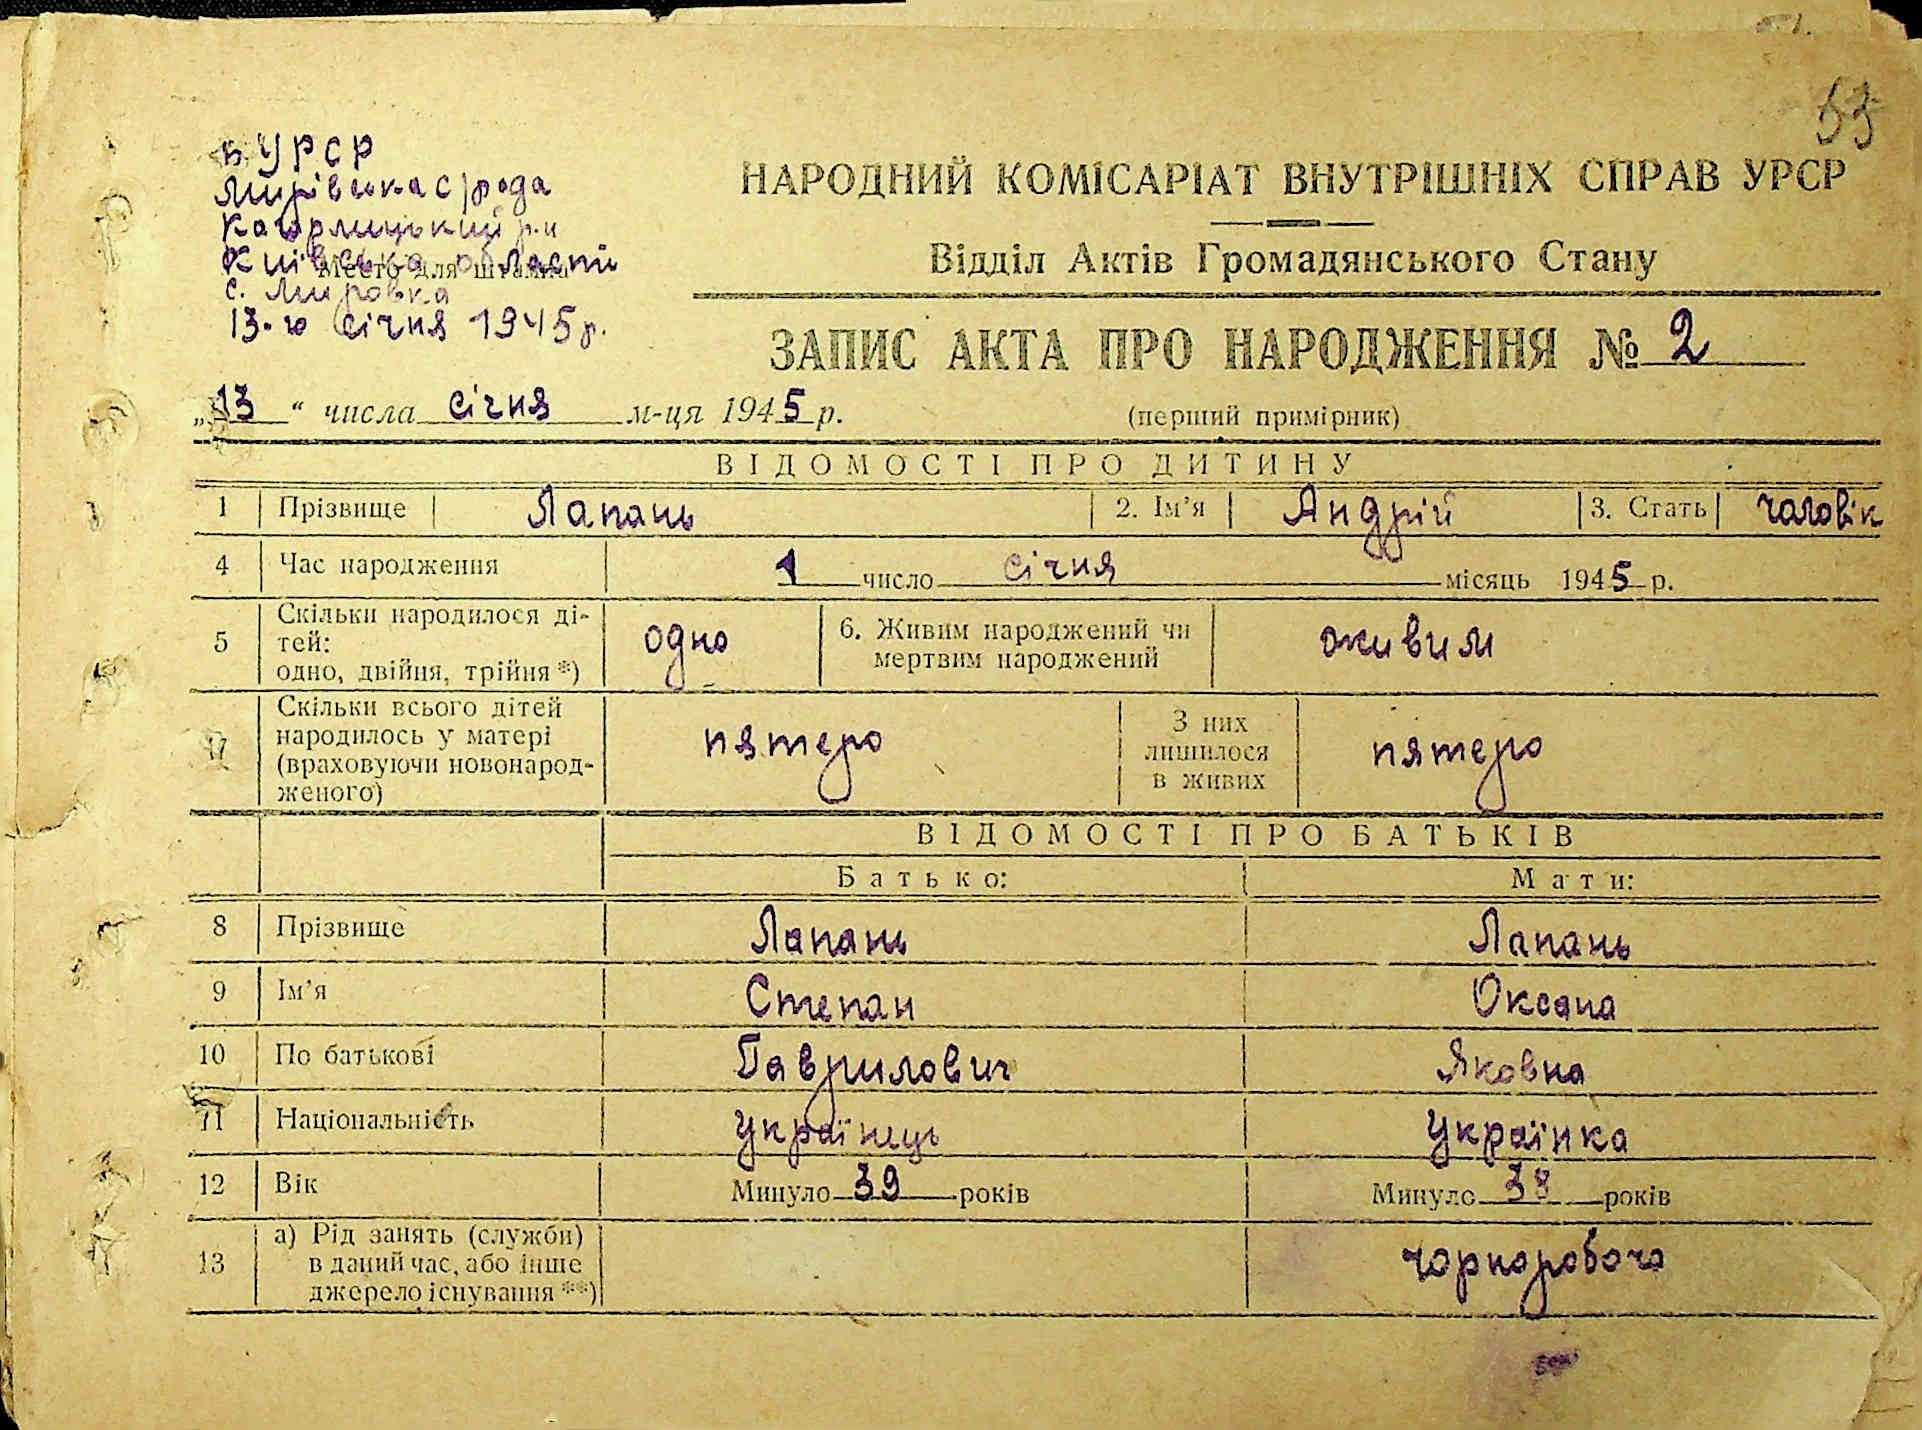 53
УРСР
Мирівська с/рада
Кагарлицький р-н
Київська області
Место для штампа
с. Мировка
13-го січня 1945 р.
НАРОДНИЙ КОМІСАРІАТ ВНУТРІШНІХ СПРАВ УРСР
Відділ Актів Громадянського Стану
ЗАПИС АКТА ПРО НАРОДЖЕННЯ № 2
„13“ числа січня м-ця 1945 р. (перший примірник)
ВІДОМОСТІ ПРО ДИТИНУ
1 Прізвище Лапань 2. Ім’я Андрій 3. Стать чоловік
4 Час народження 1 число січня місяць 1945 р.
5 Скільки народилося ді-
тей:
одно, двійня, трійня *) одно 6. Живим народжений чи
мертвим народжений живим
7 Скільки всього дітей
народилось у матері
(враховуючи новонарод-
женого) пятеро З них
лишилося
в живих пятеро
ВІДОМОСТІ ПРО БАТЬКІВ
Батько: Мати:
8 Прізвище Лапань Лапань
9 Ім’я Степан Оксана
10 По батькові Гаврилович Яковна
11 Національність українець українка
12 Вік Минуло 39 років Минуло 38 років
13 а) Рід занять (служби)
в даний час, або інше
джерело існування **) чорноробоча